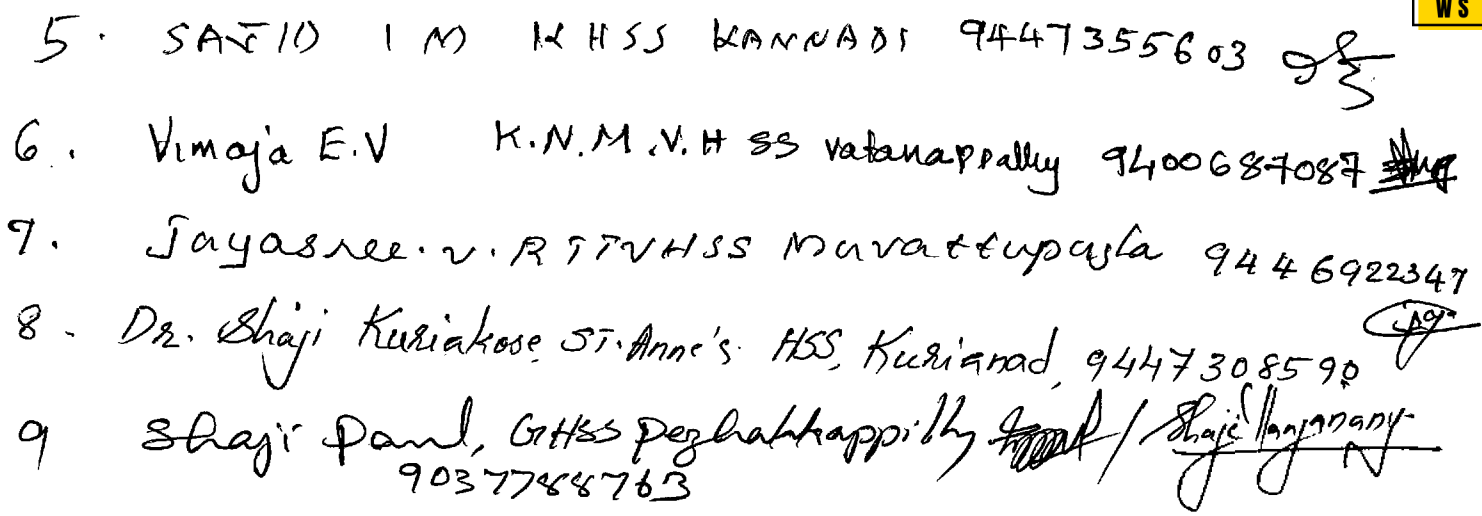 WS
5. SAJID I M KHSS KANNADI 9447355603
6. Vimaja E.V K.N.M.V.H SS vatanappally 9400687087
7. Jayasree.v.R TTVHSS Muvattupuzla 9446922347
8. Dr. Shaji Kuriakose, ST. Anne's HSS, Kurianad, 9447308590
9 Shaji Paul, GHSS Pezhakkappilly / Shaji
9037788763